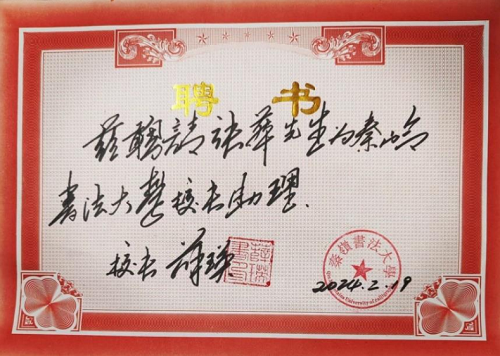 聘书
兹聘請张華先生为秦岭
書法大學校长助理.
校长
秦嶺書法大學
2024.2.19